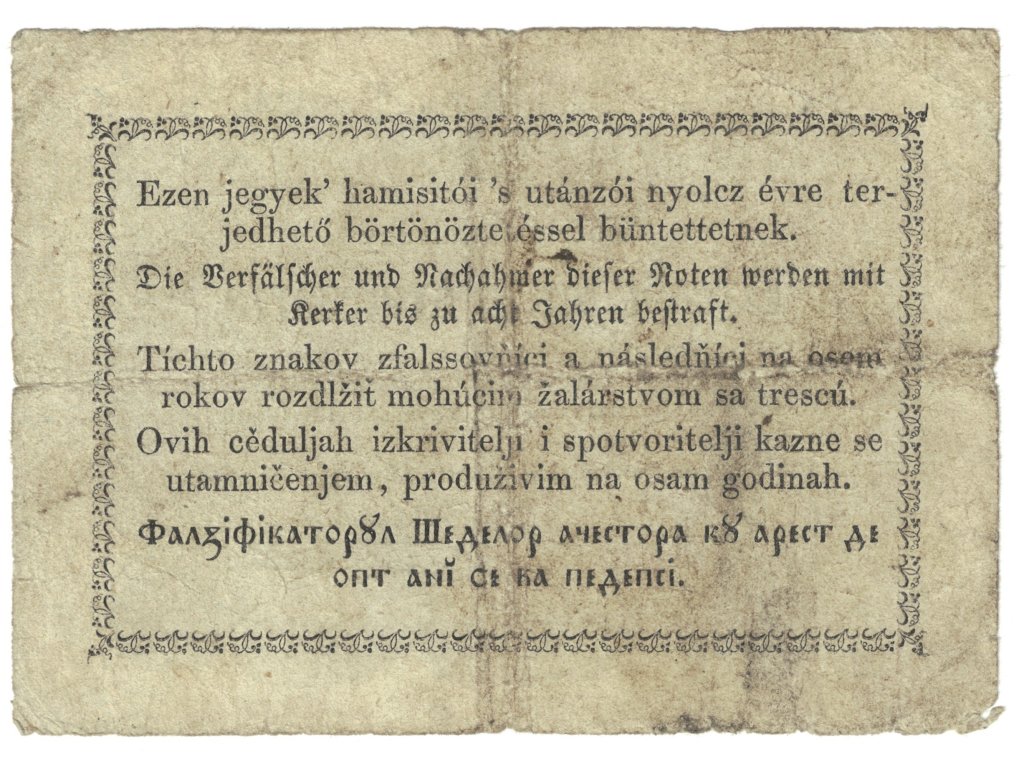 Ezen jegyek' hamisitói 's utánzói nyolcz évre ter-
jedhető börtönöztetéssel büntettetnek.
Die Verfälscher und Nachahmer dieser Noten werden mit
Kerker bis zu acht Jahren bestraft.
Tíchto znakov zfalssovňíci a následňíci na osem
rokov rozdlžiť mohúcim žalárstvom sa trescú.
Ovih cěduljah izkrivitelji i spotvoritelji kazne se
utamničenjem, produživim na osam godinah.
Фалзіфікаторꙋл Шеделор ачестора кꙋ арест де
опт анĭ се ва педепсі.